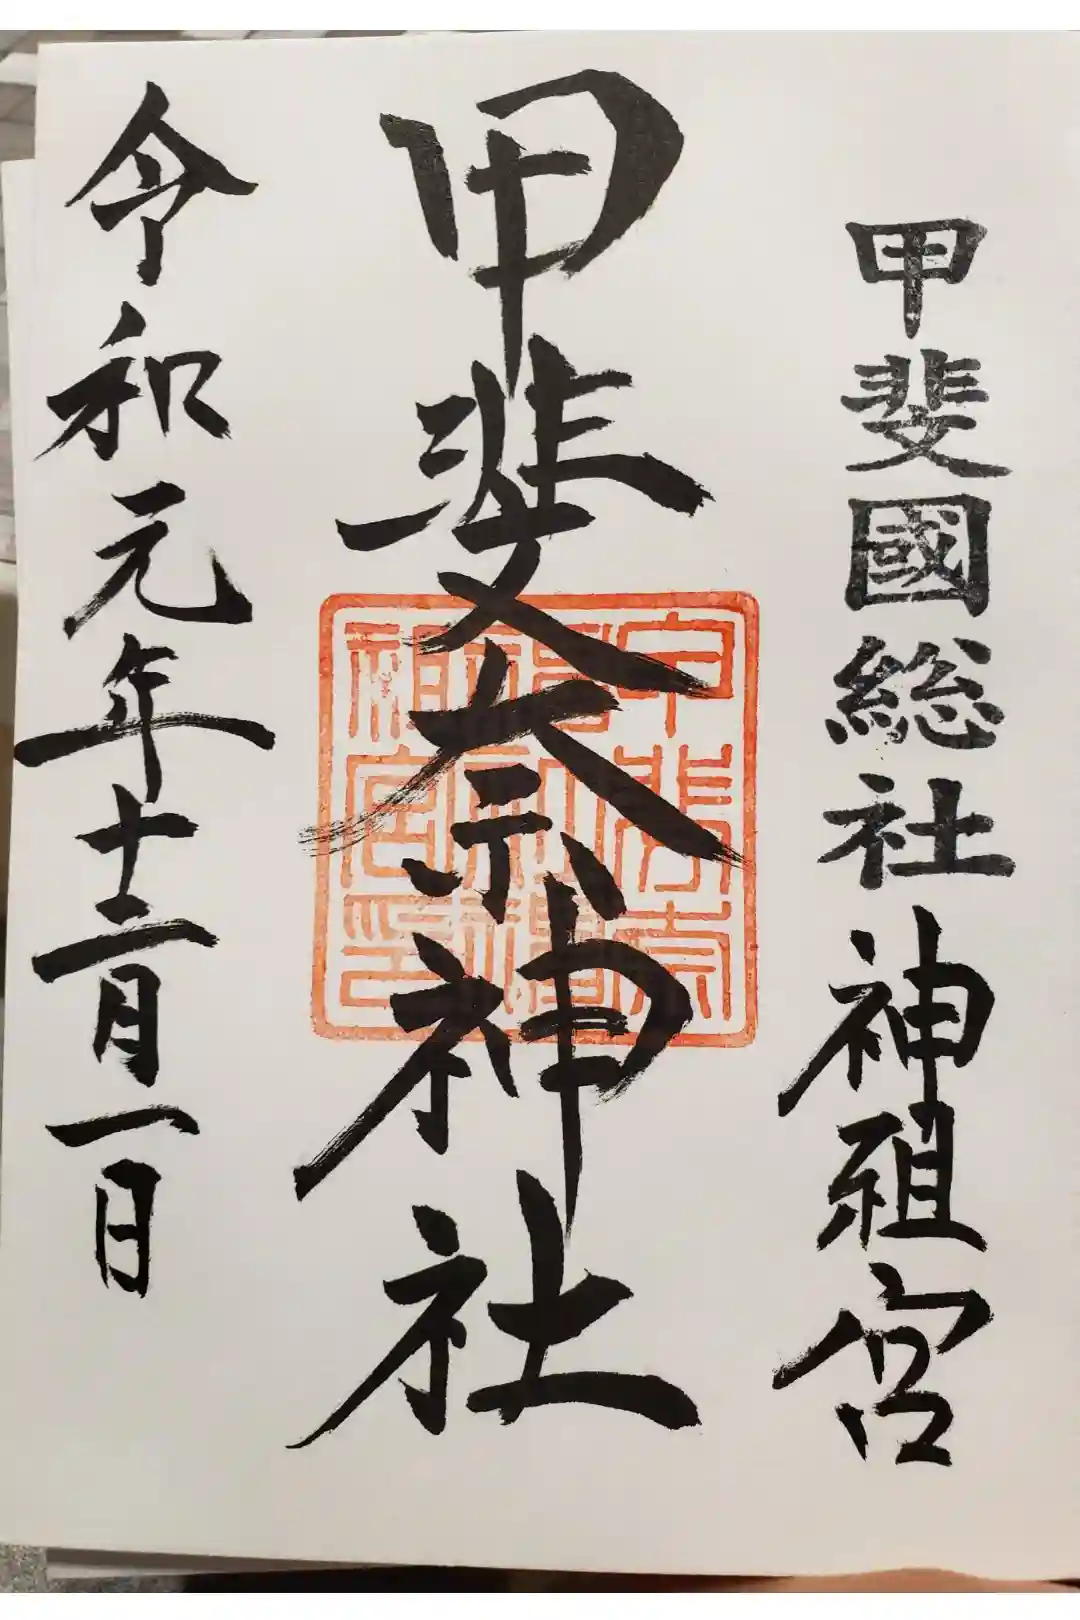 甲斐國総社神祖宮
甲斐奈神社
甲斐奈
祖宮印
令和元年十二月一日